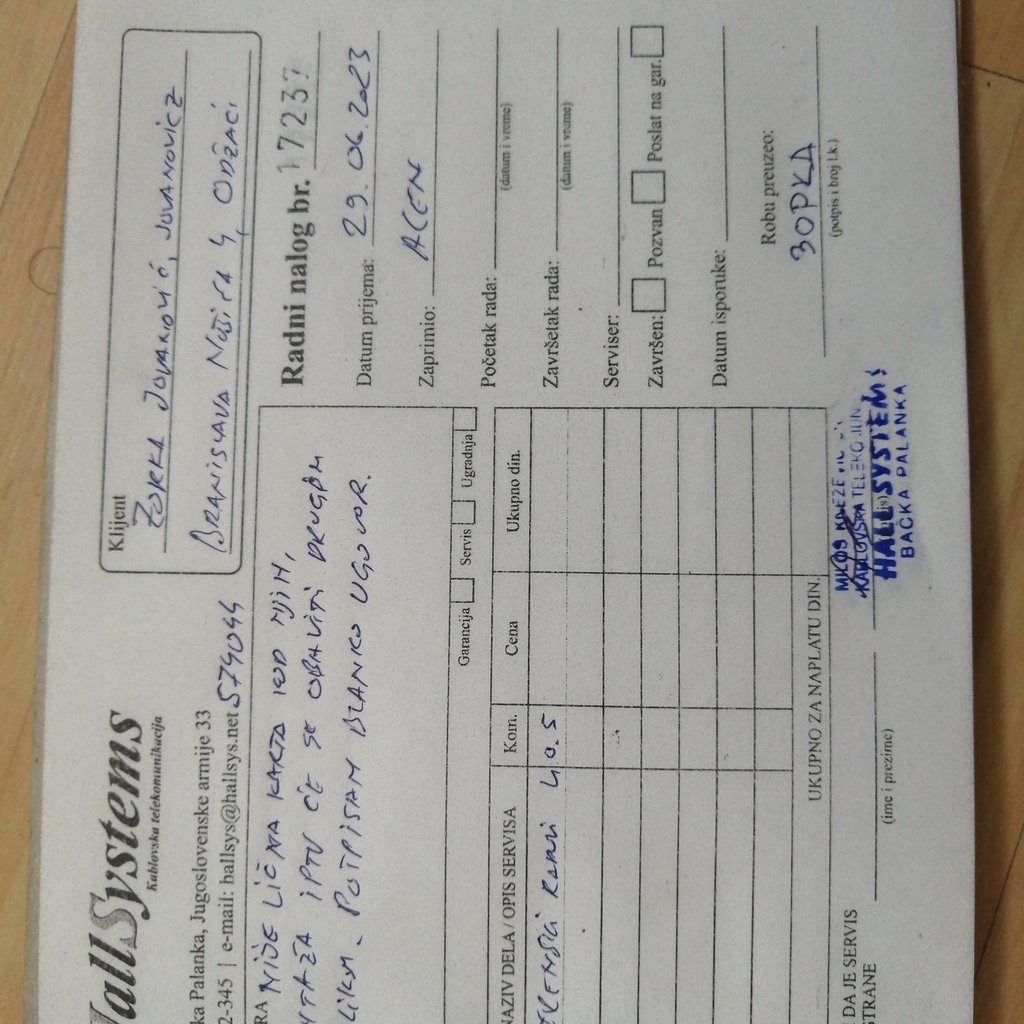 HallSystems
Kablovska telekomunikacija
ka Palanka, Jugoslovenske armije 33
2-345 | e-mail: hallsys@hallsys.net
574044
Klijent
ZORKA JOVANOVIĆ, JOVANOVICZ
BRANISLAVA NUŠIĆA 4, ODŽACI
RA NIJE LIČNA KARTA KOD NJIH,
NTAŽA IPTV ĆE SE OBAVITI DRUGOM
LIKOM. POTPISAN BLANKO UGOVOR.
Garancija Servis Ugradnja
Radni nalog br. 17237
Datum prijema: 29.06.2023
Zaprimio: ACEN
Početak rada:
(datum i vreme)
Završetak rada:
(datum i vreme)
Serviser:
Završen: Pozvan Poslat na gar.
Datum isporuke:
Robu preuzeo:
ЗОРКА
(potpis i broj l.k.)
NAZIV DELA / OPIS SERVISA Kom. Cena Ukupno din.
4 0.5
UKUPNO ZA NAPLATU DIN.
DA JE SERVIS
TRANE
(ime i prezime)
KABLOVSKA TELEKOMUN
HALL SYSTEMS
BAČKA PALANKA